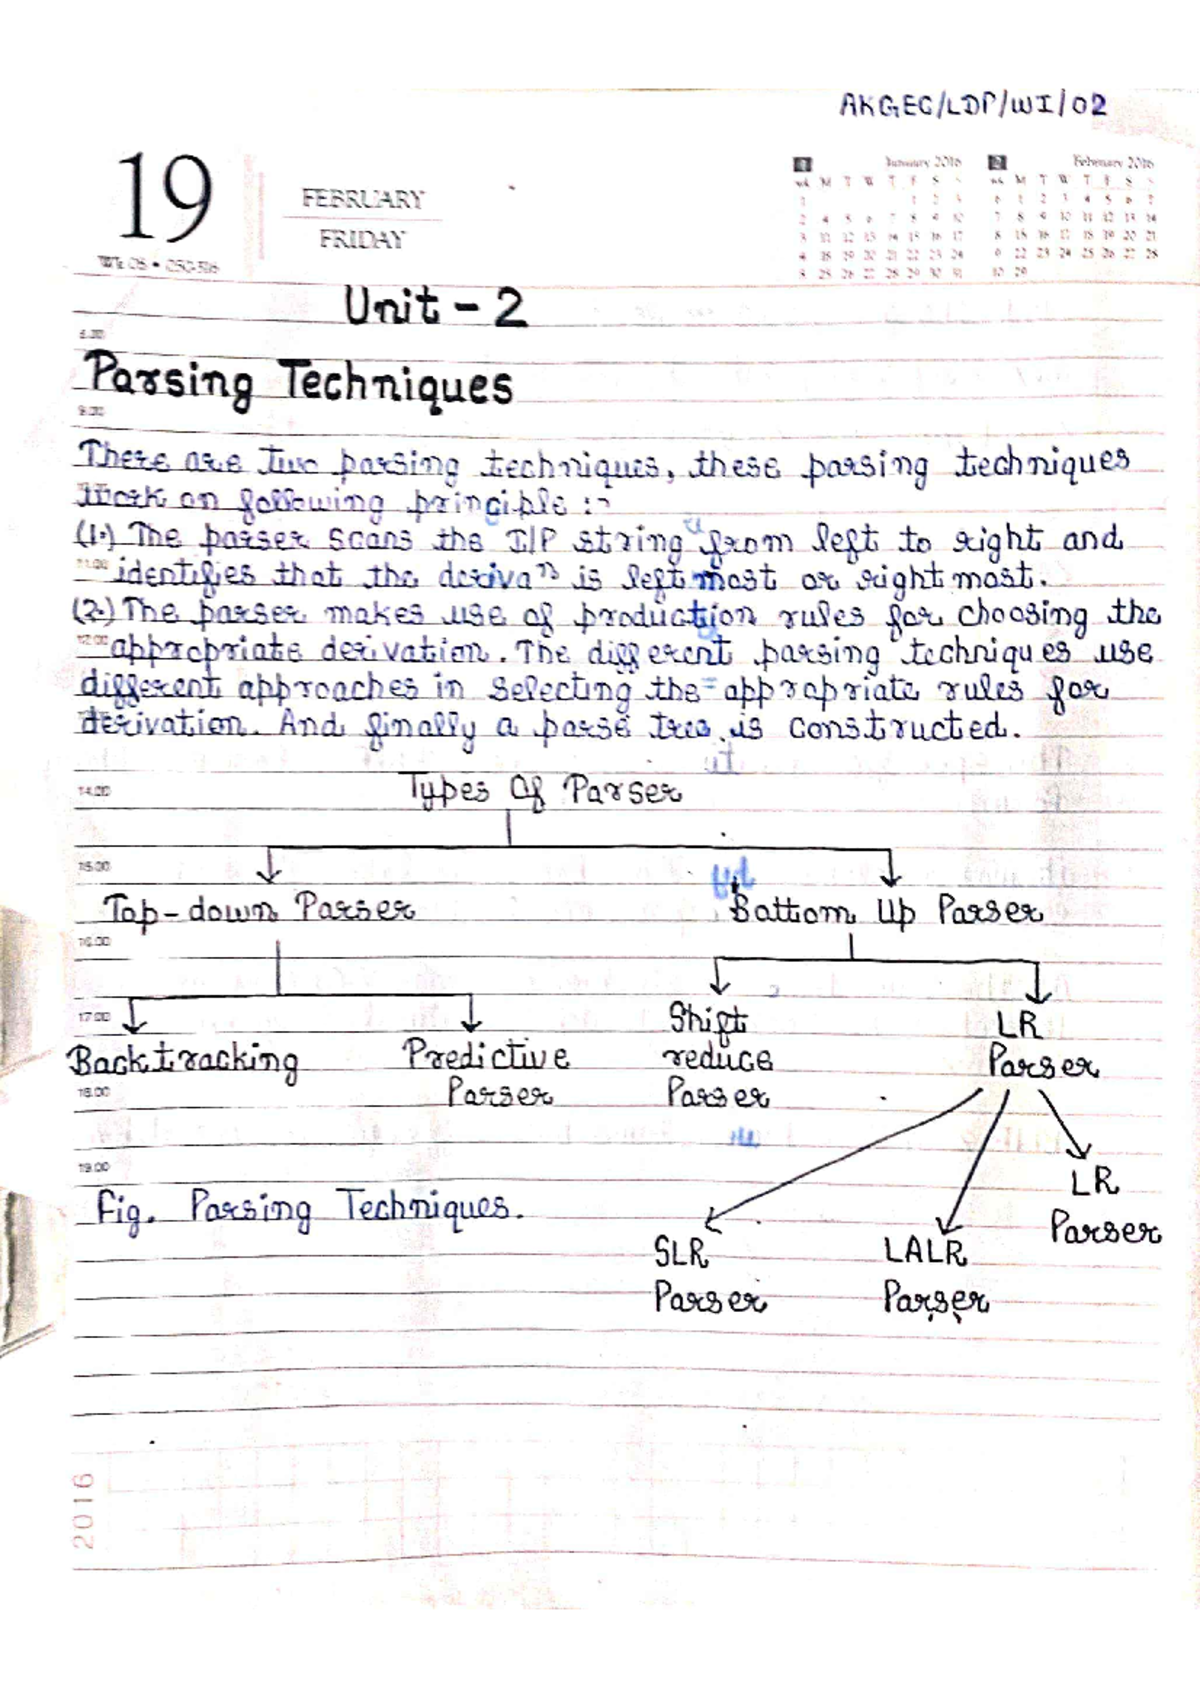 AKGEC/LDP/WI/02
19
FEBRUARY
FRIDAY
January 2016
February 2016
Unit - 2
Parsing Techniques
9.00
There are two parsing techniques, these parsing techniques
work on following principle :-
(1.) The parser scans the I/P string from left to right and
identifies that the derivaⁿ is left most or right most.
(2.) The parser makes use of production rules for choosing the
appropriate derivation. The different parsing techniques use
different approaches in selecting the appropriate rules for
derivation. And finally a parse tree is constructed.
14.00
Types Of Parser
15.00
Top-down Parser
Bottom Up Parser
16.00
17.00
Shift
LR
Backtracking
Predictive
reduce
Parser
18.00
Parser
Parser
19.00
LR
Fig. Parsing Techniques.
Parser
SLR
LALR
Parser
Parser
2016